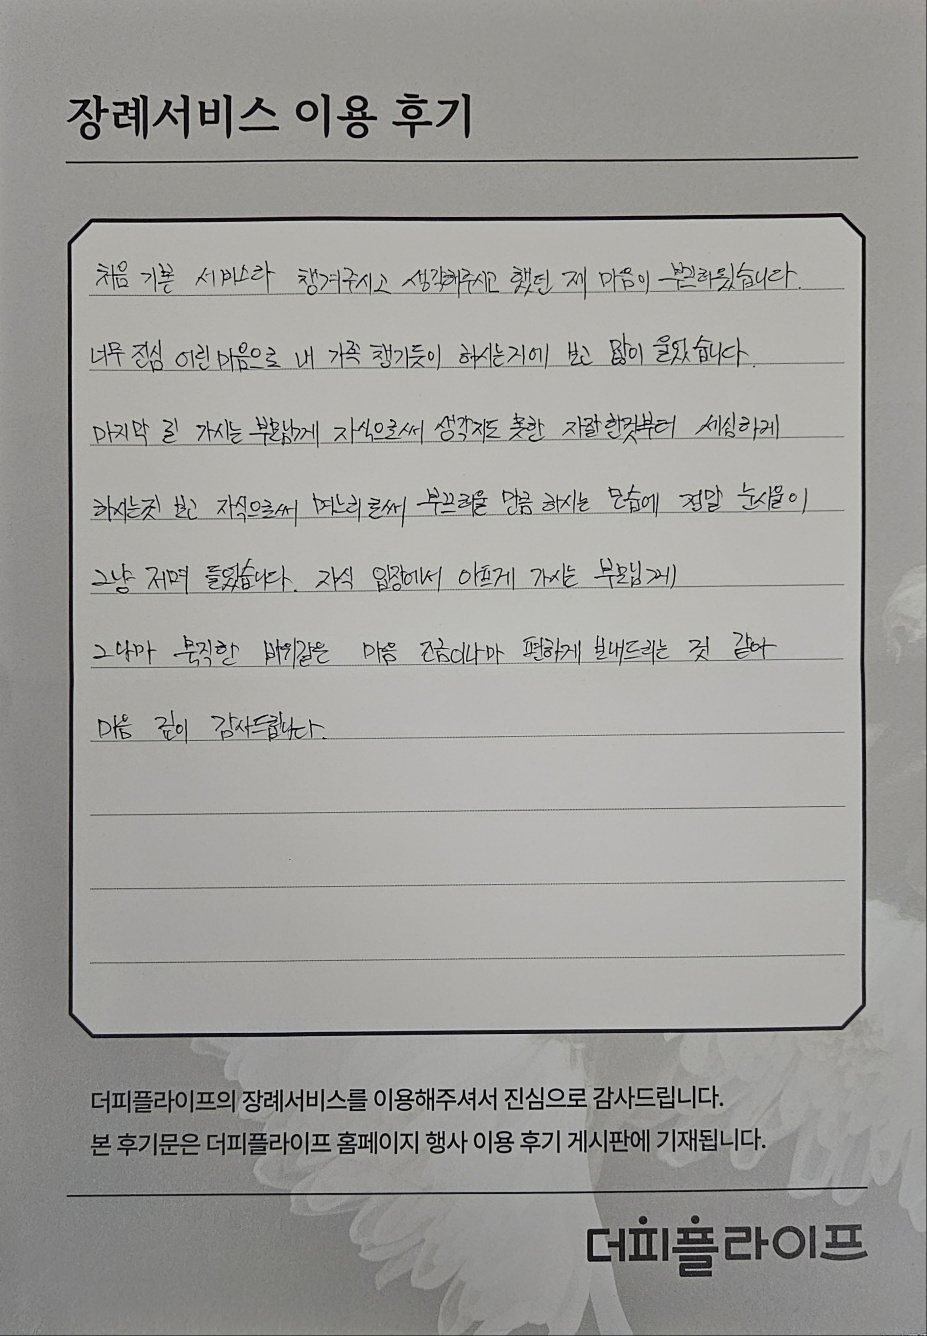 장례서비스 이용 후기
처음 기본 서비스라 챙겨주시고 생각해주시고 했던 제 마음이 부끄러웠습니다.
너무 진심 어린 마음으로 내 가족 챙기듯이 하시는거에 보고 많이 울었습니다.
마지막 길 가시는 부모님께 자식으로써 생각지도 못한 자잘한것부터 세심하게
하시는것 보고 자식으로써 며느리로써 부끄러울 만큼 하시는 모습에 정말 눈시울이
그냥 저며 들었습니다. 자식 입장에서 아프게 가시는 부모님께
그나마 묵직한 바위같은 마음 조금이나마 편하게 보내드리는 것 같아
마음 깊이 감사드립니다.
더피플라이프의 장례서비스를 이용해주셔서 진심으로 감사드립니다.
본 후기문은 더피플라이프 홈페이지 행사 이용 후기 게시판에 기재됩니다.
더피플라이프